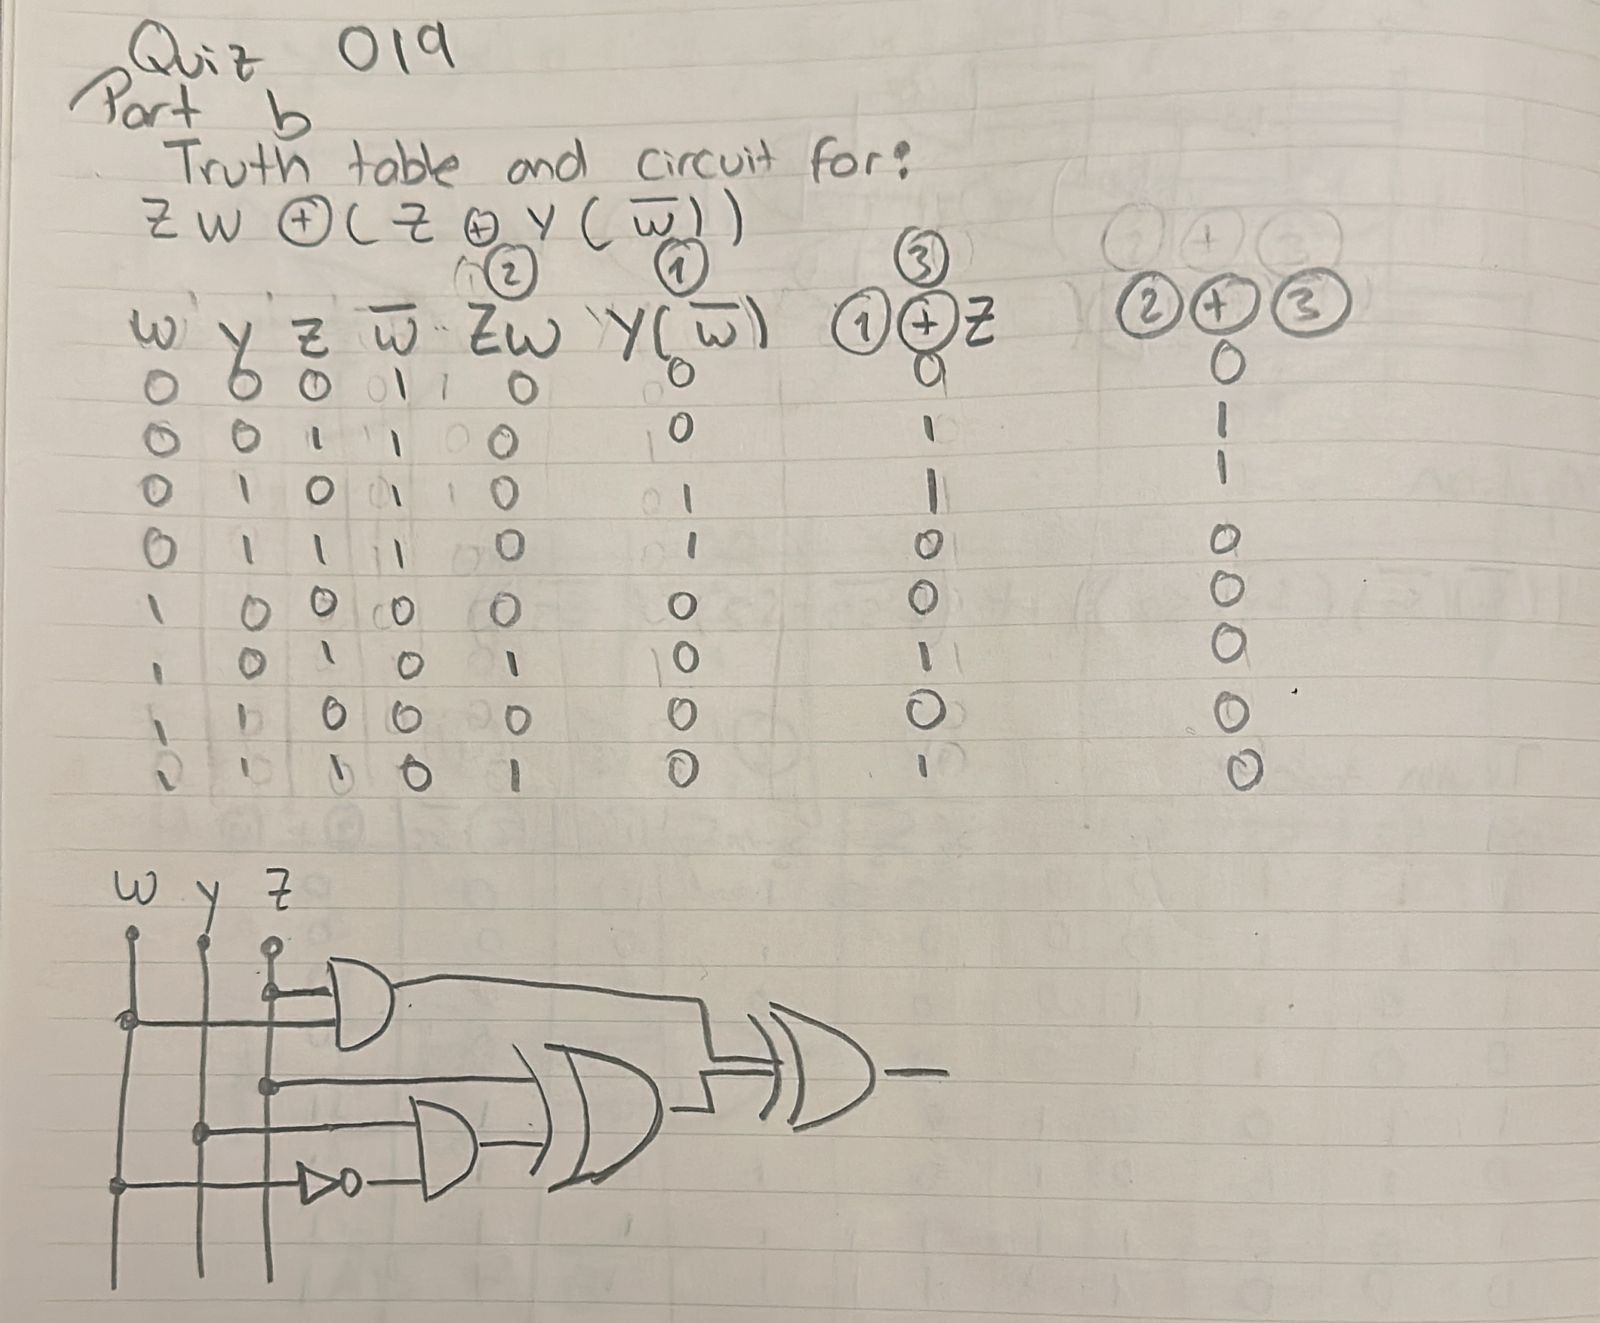 Quiz 019
Part b
Truth table and circuit for:
Z W ⊕ ( Z ⊕ Y ( w̅ ) )
② ① ③
w y z w̅ Zw Y( w̅ ) ①⊕Z ②⊕③
0 0 0 1 0 0 0 0
0 0 1 1 0 0 1 1
0 1 0 1 0 1 1 1
0 1 1 1 0 1 0 0
1 0 0 0 0 0 0 0
1 0 1 0 1 0 1 0
1 1 0 0 0 0 0 0
1 1 1 0 1 0 1 0
w y z